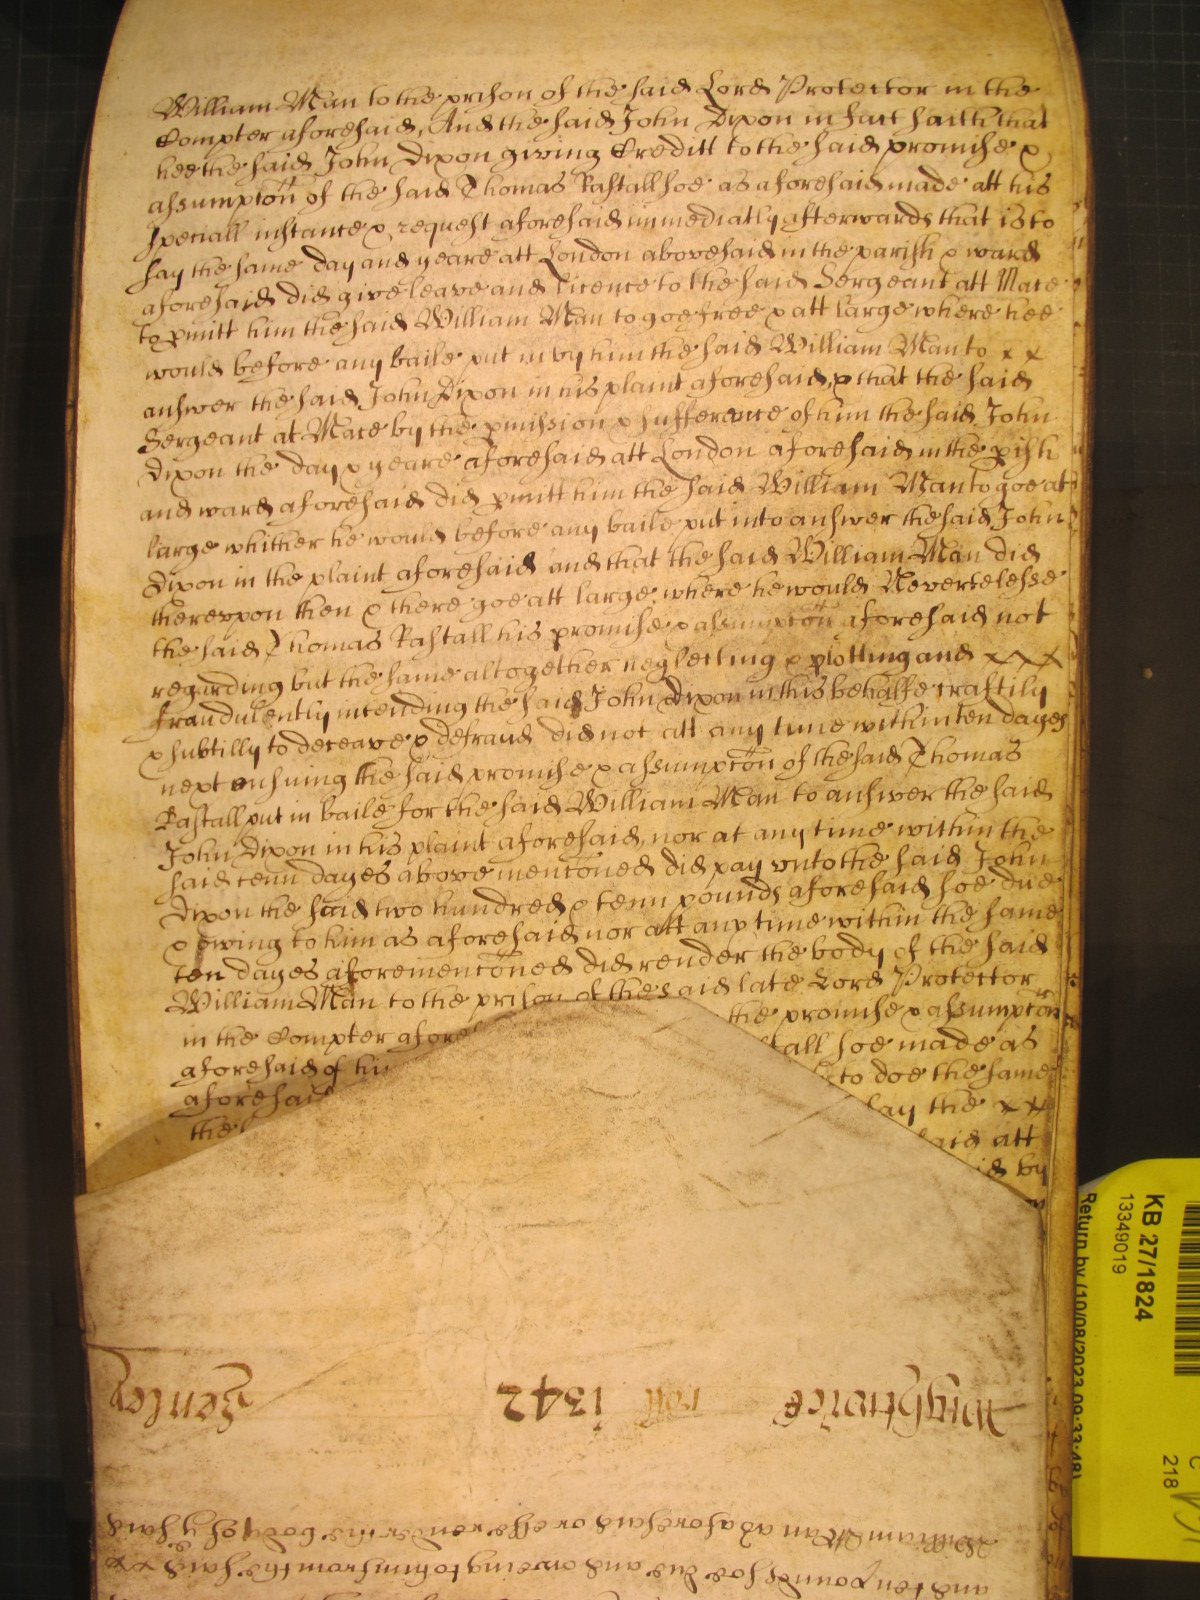 William Man to the prison of the said Lord Protector in the
Compter aforesaid, And the said John Dixon in fact saith that
hee the said John Dixon giving Creditt to the said promise &
assumpcon of the said Thomas Rastall soe as aforesaid made att his
speciall instance & request aforesaid immediatly afterwards that is to
say the same day and yeare att London abovesaid in the parish & ward
aforesaid did give leave and licence to the said Sergeant att Mace
to pmitt him the said William Man to goe free & att large where hee
would before any baile put in by him the said William Man to x x
answer the said John Dixon in his plaint aforesaid, & that the said
Sergeant at Mace by the pmission & sufferance of him the said John
Dixon the day & yeare aforesaid att London aforesaid in the pish
and ward aforesaid did pmitt him the said William Man to goe at
large whither he would before any baile put in to answer the said John
Dixon in the plaint aforesaid and that the said William Man did
thereuppon then & there goe att large where he would Neverthelesse
the said Thomas Rastall his promise & assumpcon aforesaid not
regarding but the same altogether neglecting & plotting and x x x
fraudulently intending the said John Dixon in this behalfe craftily
& subtilly to deceave & defraud did not att any time within ten dayes
next ensuing the said promise & assumpcon of the said Thomas
Rastall put in baile for the said William Man to answer the said
John Dixon in his plaint aforesaid, nor at any time within the
said tenn dayes above menconed did pay unto the said John
Dixon the said two hundred & tenn pounds aforesaid soe due
& owing to him as aforesaid nor att any time within the same
ten dayes aforemenconed did render the body of the said
William Man to the prison of the said late Lord Protector
in the Compter afores the promise & assumpcon
aforesaid of hi stall soe made as
aforesaid to doe the same
the say the x x
said att
id by
Wightwick roll 1342 Henley
William Man as aforesaid or else render the body of the said
and ten pounds soe due and oweing to him from the said x x
KB 27/1824
13349019
Return by (10/08/2023 09:33:48)
218